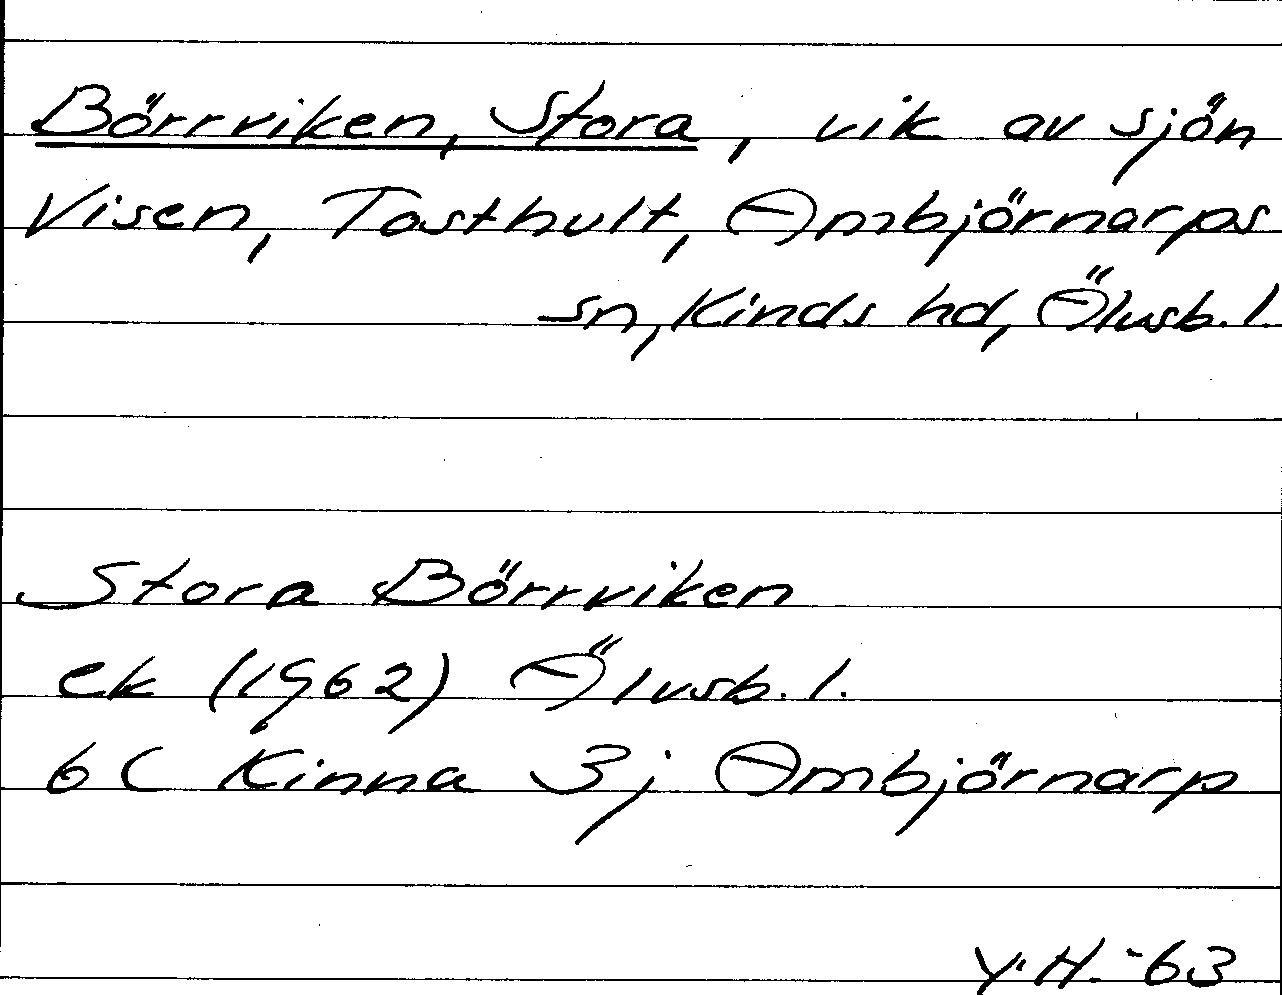 Börrviken, Stora, vik av sjön
Visen, Tosthult, Ambjörnarps
sn, Kinds hd, Älvsb. l.
Stora Börrviken
ek (1962) Älvsb. l.
6 C Kinna 3j Ambjörnarp
Y.H. -63